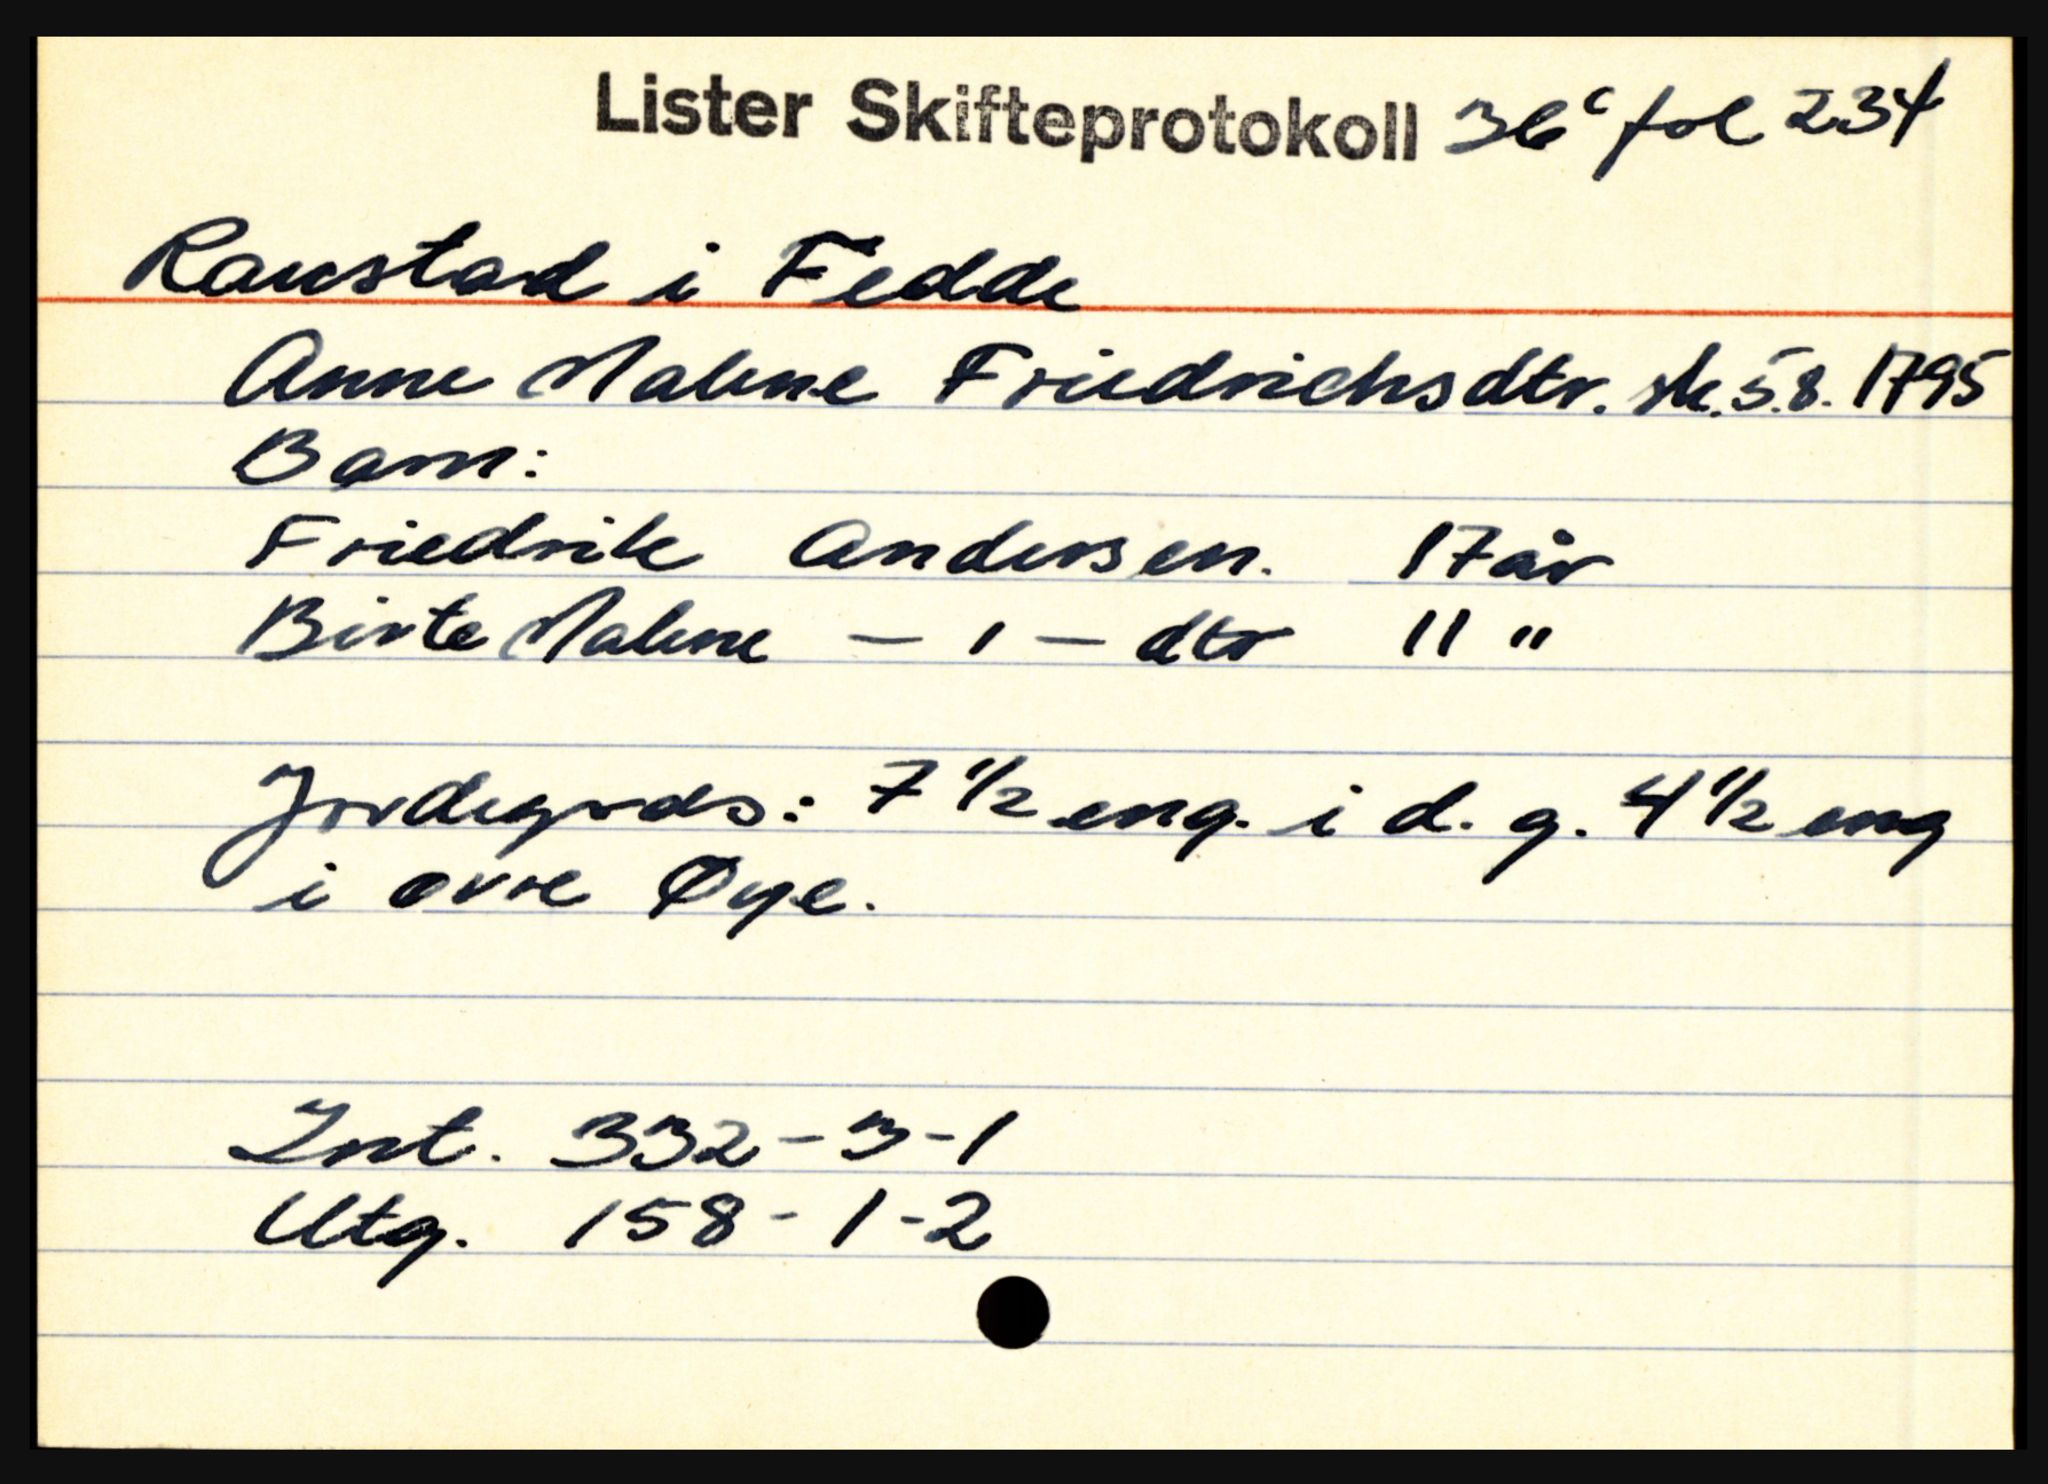 Lister Skifteprotokoll 36c fol 234
Raustad i Fedde
Anne Malene Friedrichsdtr. sk. 5.8. 1795
Barn:
Friedrik Andersen. 17 år
Birte Malene — ı — dtr 11 "
Jordegods: 7 1/2 eng. i d. g. 4 1/2 eng
i øvre Øye.
Int. 332 - 3 - 1
Utg. 158 - 1 - 2